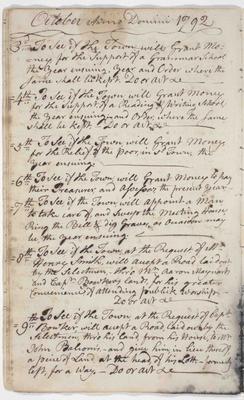 October Anno Domini 1792
3d To See if the Town will Grant Mo-
ney for the Support of a Grammar School
the Year ensuing, Year and Order where the
same shall be kept Do or Act &c
4th To See if the Town will Grant Money
for the Support of a Reading & Writing School
the Year ensuing and Order where the same
shall be kept Do or Act &c
5th To See if the Town will Grant Money
for the Relief of the Poor in sd Town the
Year ensuing
6th To See if the Town will Grant Money to pay
their Treasurer, and Assessors the present Year
7th To See if the Town will appoint a Man
to take care of, and Sweep the Meeting House,
Ring the Bell & dig Graves, as Occasion may
be the Year ensuing
8th To See if the Town, at the Request of Mr
Smith will accept a Road laid out
by the Selectmen, thro Mr. Aaron
and Capt. land, for his greater
Conveniency of attending publick worship
Do Or Act &c
9th To See if the Town at the Request of Capt
will accept a Road, laid out by the
Selectmen, thro his land from his House, to Mr
John and give him in lieu thereof
a piece of Land at the head of his Lott formerly
left for a Way - Do or Act &c